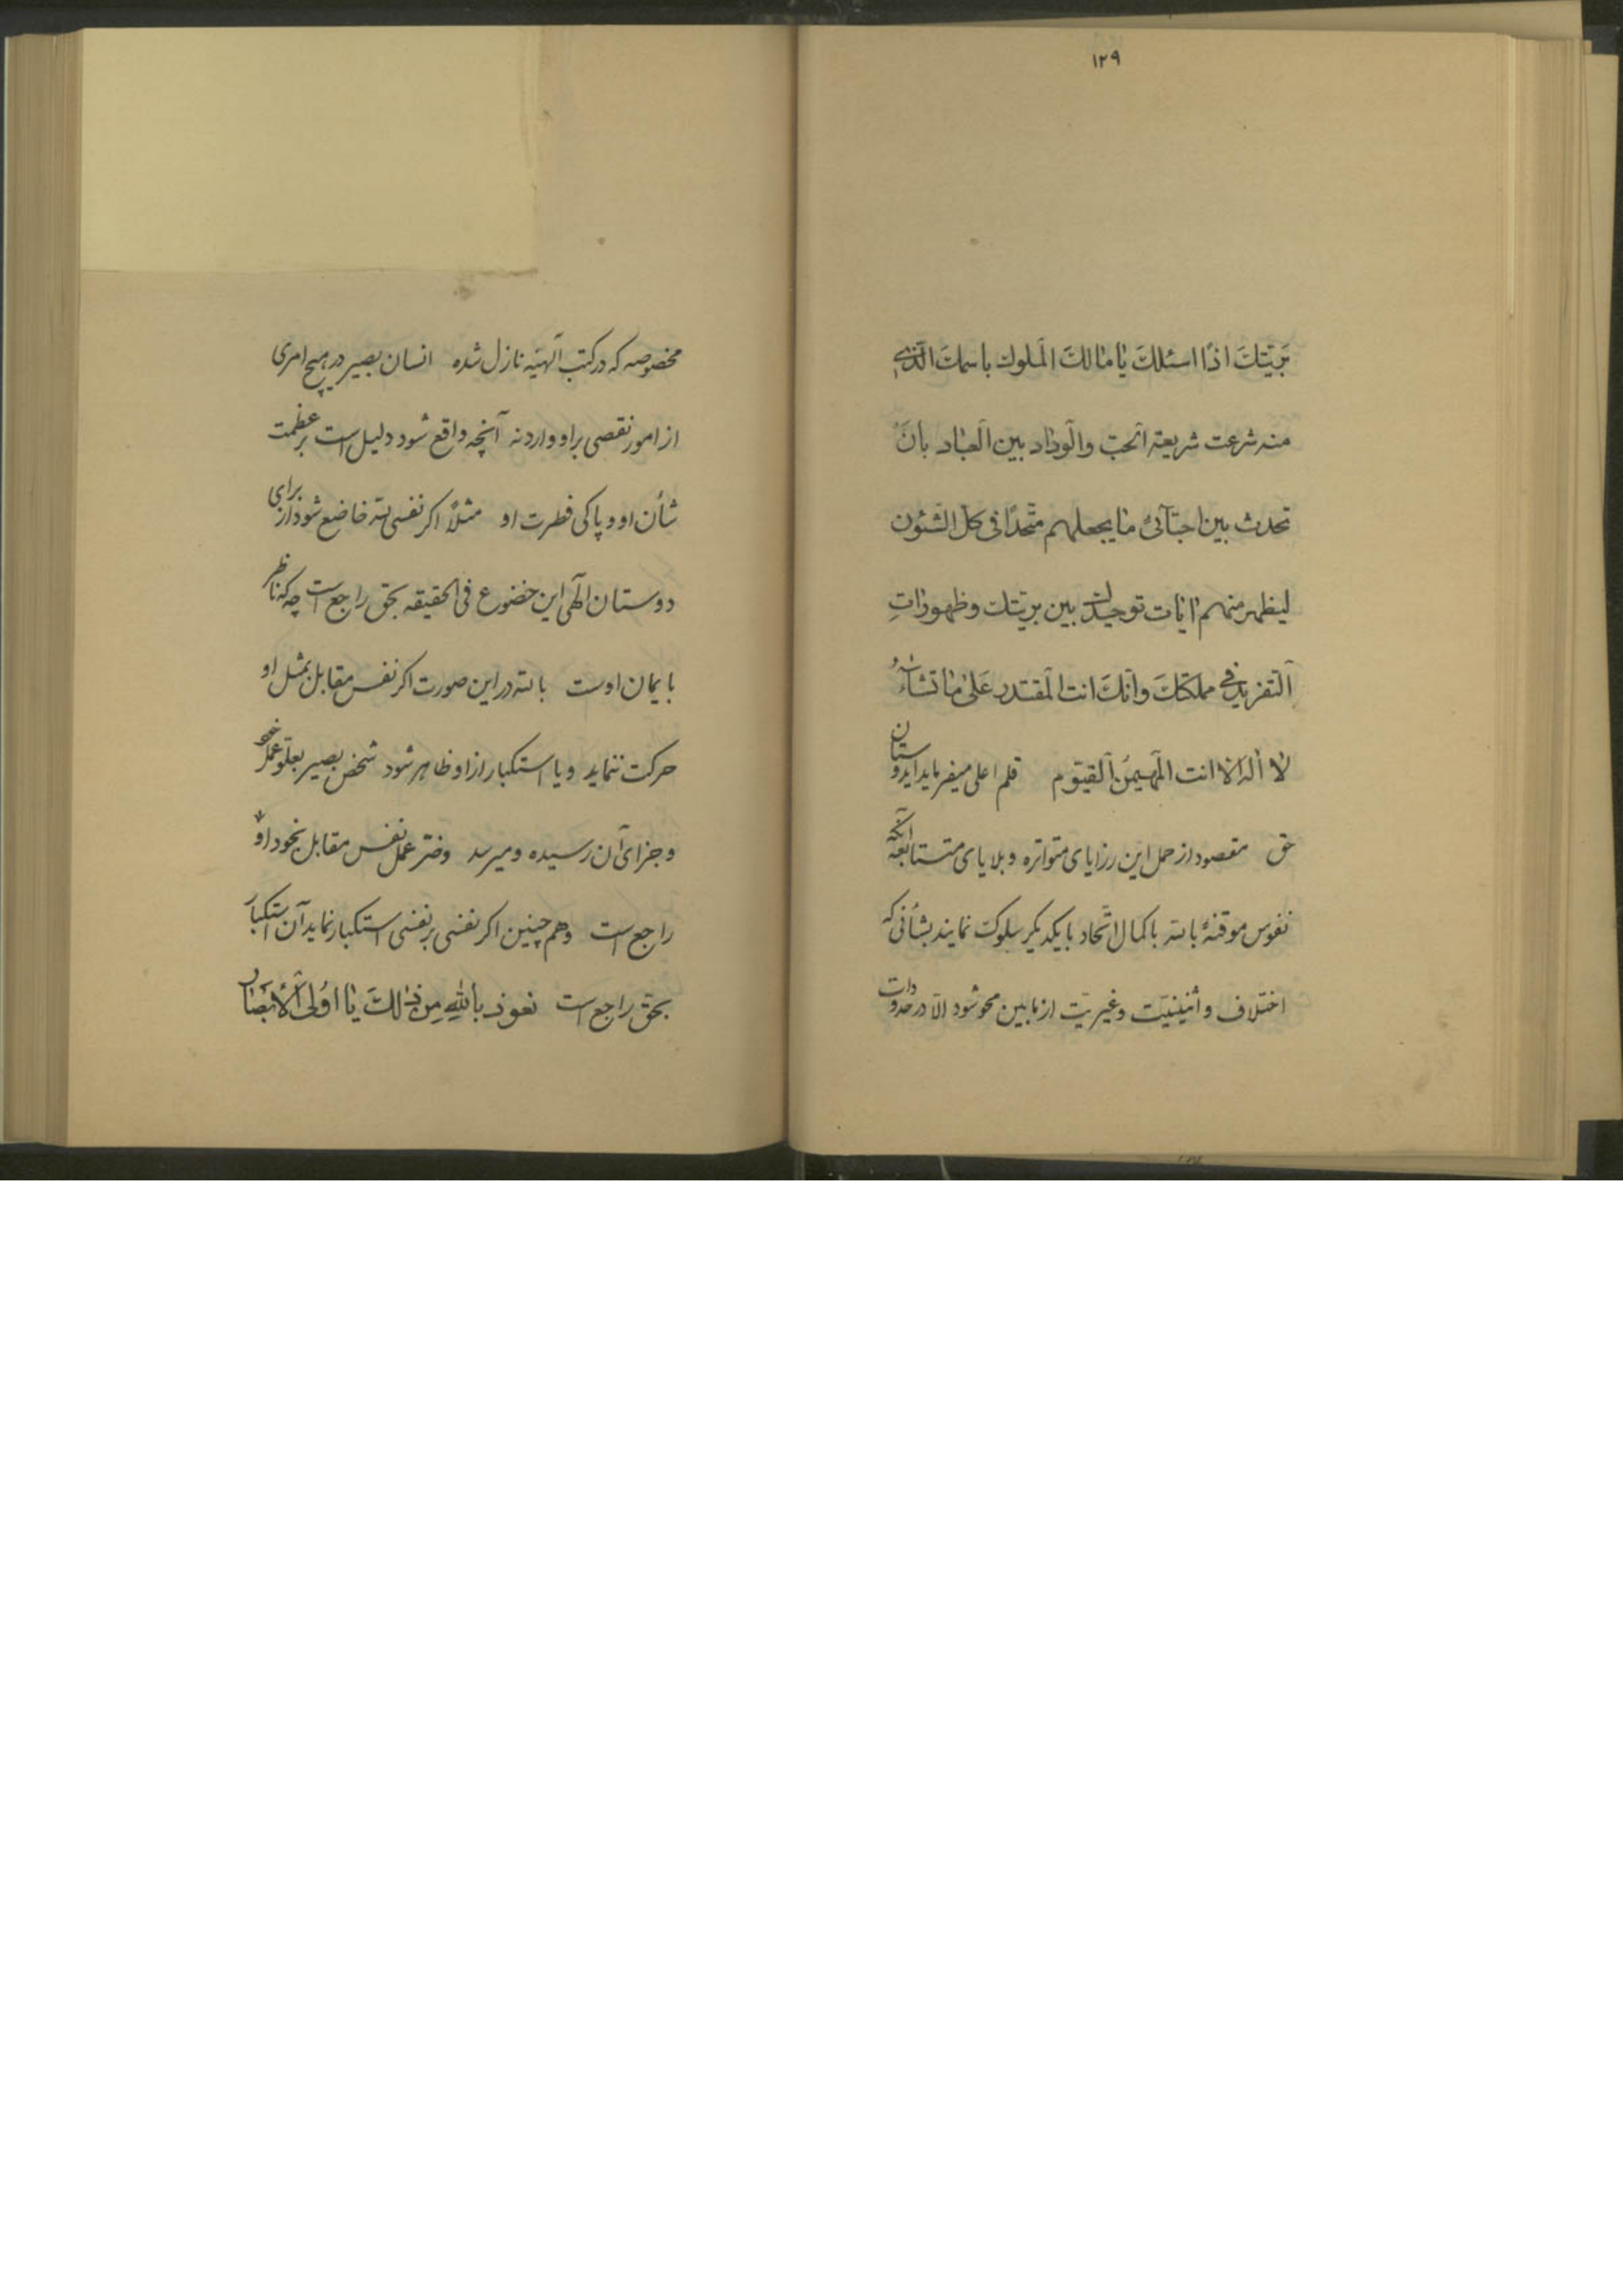 ١٢٩
بَرِيّتك اذًا اسئلكَ يا مالكَ الملوك باسمكَ الّذي
منه شرعت شريعة الحبّ والوداد بين العباد بانَ
تحدث بين احبّائى ما يجعلهم متّحدًا فى كلّ الشّئون
ليظهر منهم ايات توحيدك بين بريّتك وظهورات
التّفريد فى مملكتكَ وانّكَ انت المقتدر على ما تشاء
لا اله الّا انت المهيمن القيّوم قلم اعلى ميفرمايد ايدوستان
حق مقصود از حمل اين رزاياى متواتره و بلاياى متتابعه آنكه
نفوس موقنهٔ بالله با كمال اتّحاد با يكديگر سلوك نمايند بشأنى كه
اختلاف و اثنينيّت و غيريّت از مابين محو شود الّا در حدودات
مخصوصه كه در كتب الٓهيّه نازل شده انسان بصير در هيچ امرى
از امور نقصى بر او وارد نه آنچه واقع شود دليل است بر عظمت
شأن او و پاكى فطرت او مثلًا اگر نفسى لله خاضع شود از براى
دوستان الٓهى اين خضوع فى الحقيقه بحق راجع است چه كه ناظر
بايمان اوست بالله در اين صورت اگر نفس مقابل بمثل او
حركت ننمايد و يا استكبار از او ظاهر شود شخص بصير بعلوّ عمل خود
و جزاى آن رسيده و ميرسد و ضرّ عمل نفس مقابل بخود او
راجع است و هم چنين اگر نفسى بر نفسى استكبار نمايد آن استكبار
بحق راجع است نعوذ باللهِ مِن ذلكَ يا اولى الأبصار